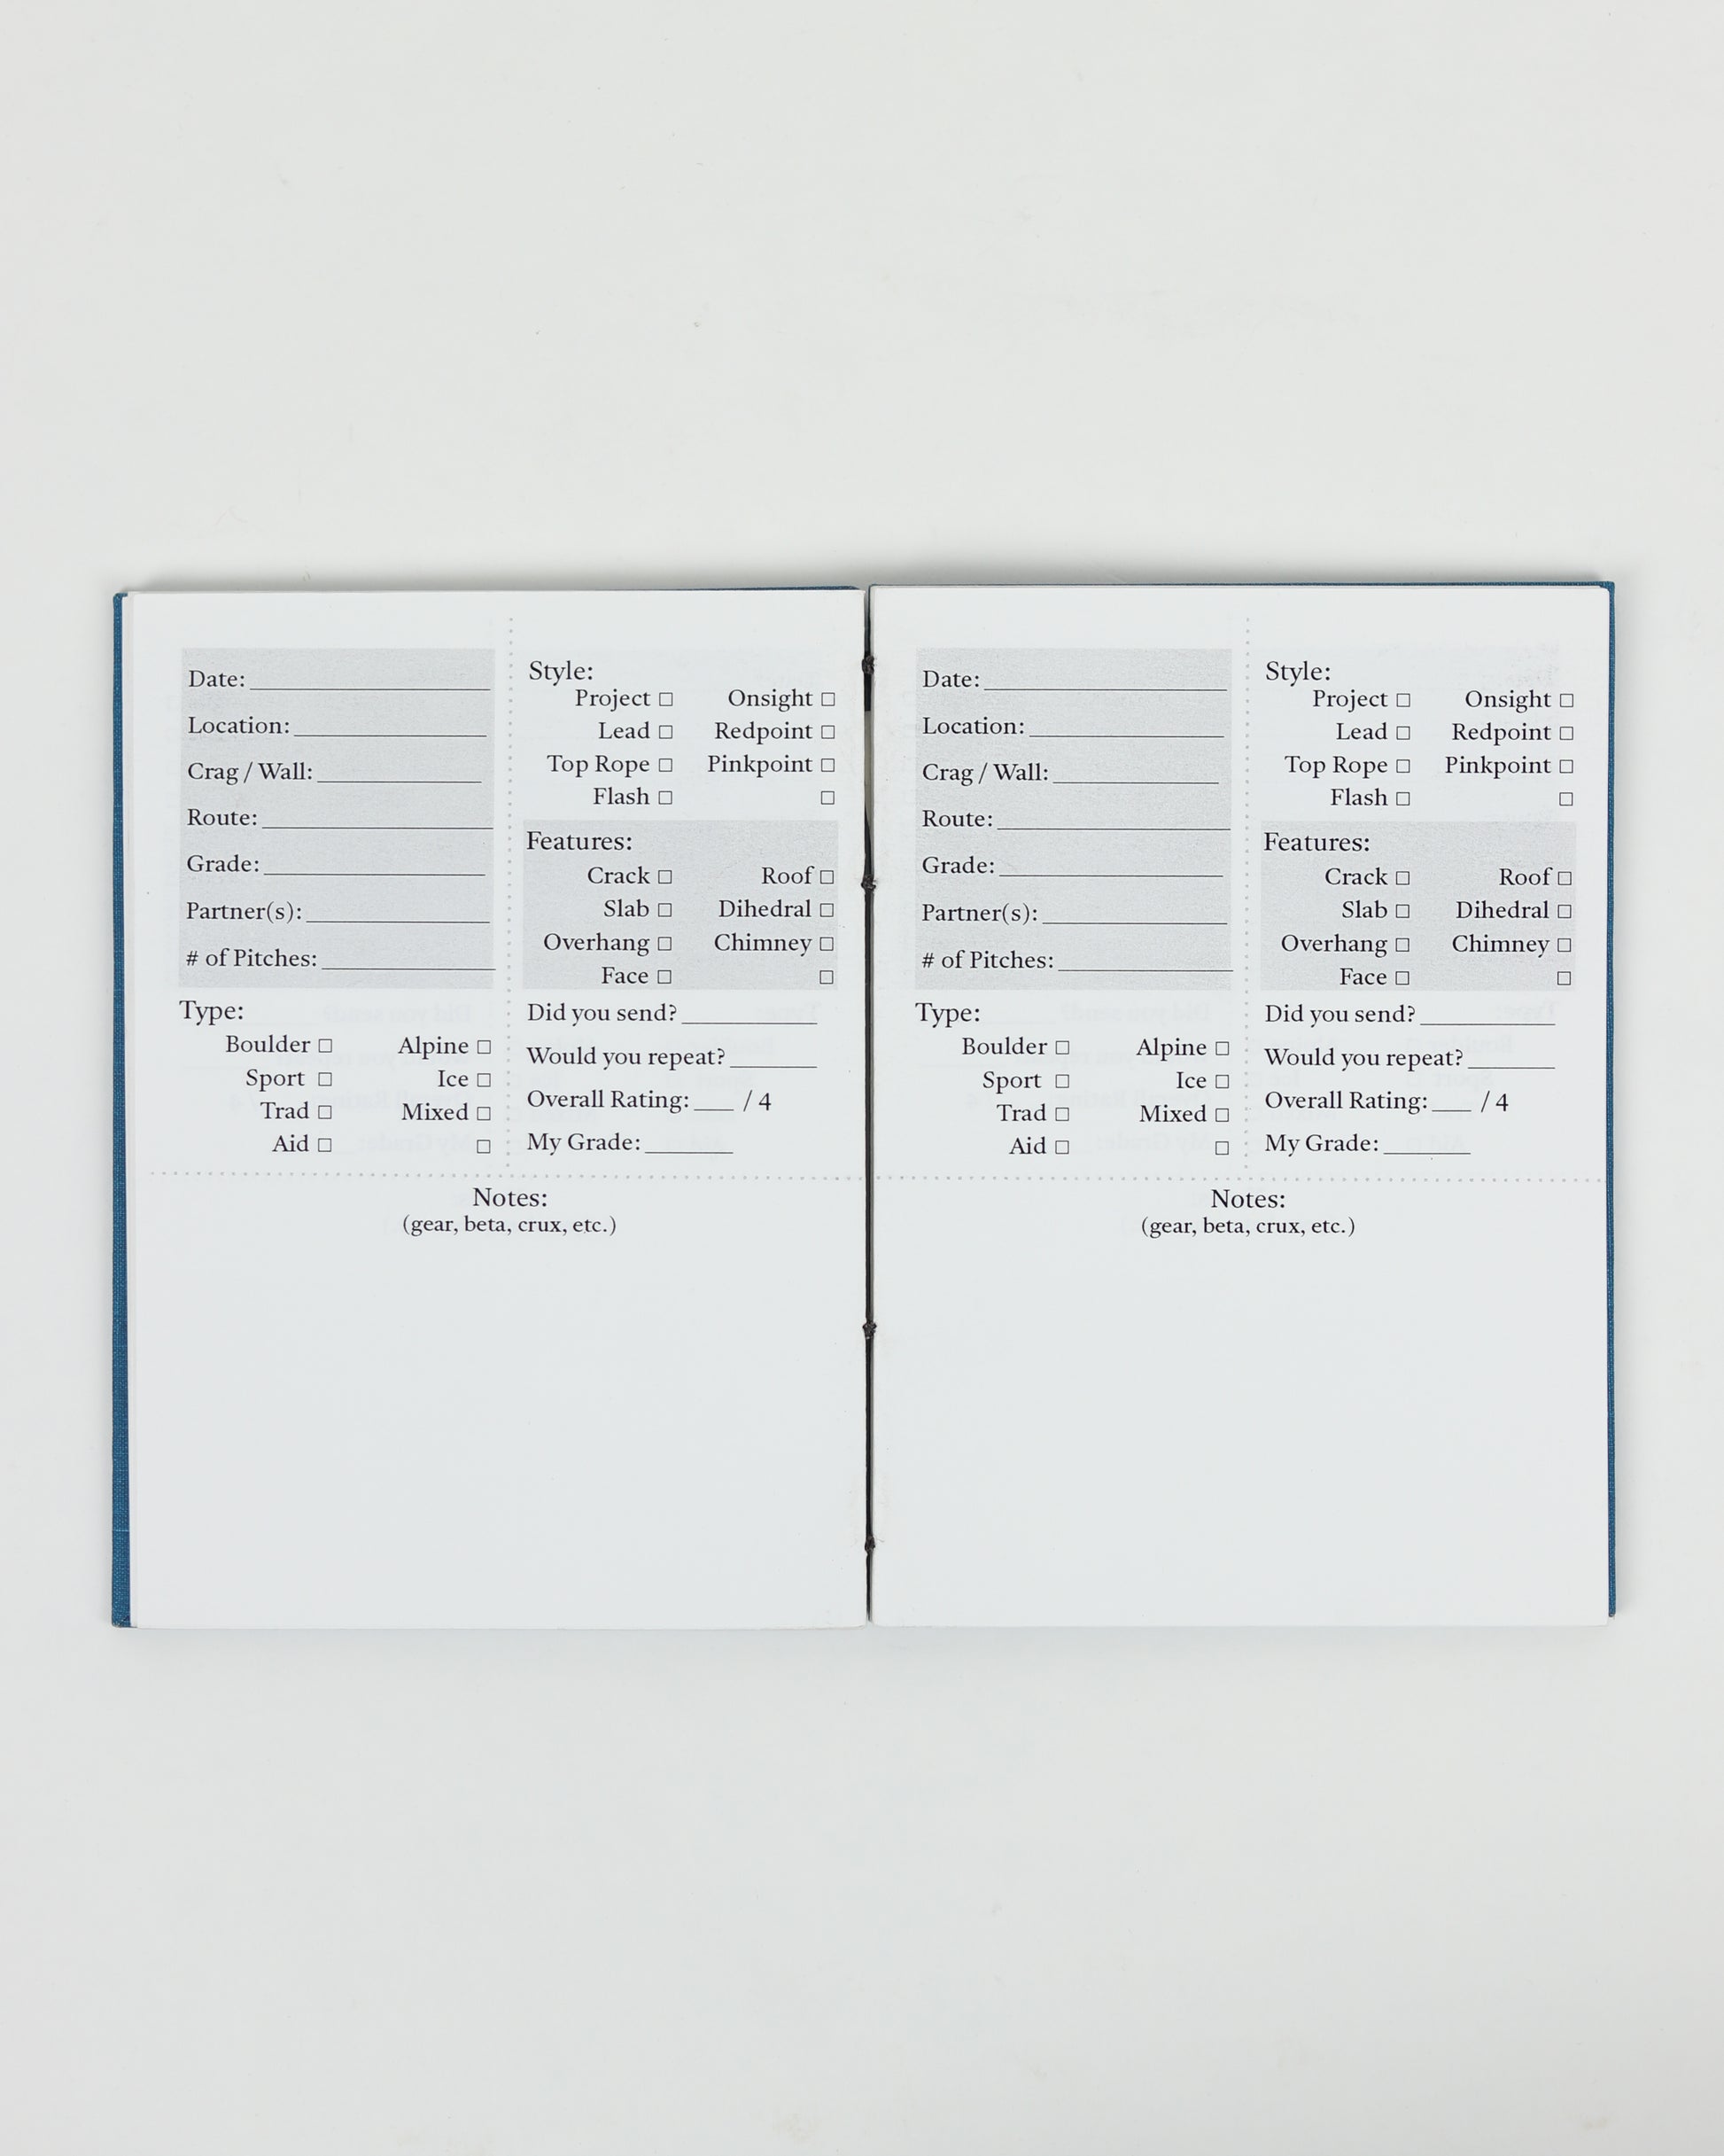 Date:
Location:
Crag / Wall:
Route:
Grade:
Partner(s):
# of Pitches:
Type:
Boulder □ Alpine □
Sport □ Ice □
Trad □ Mixed □
Aid □ □
Style:
Project □ Onsight □
Lead □ Redpoint □
Top Rope □ Pinkpoint □
Flash □ □
Features:
Crack □ Roof □
Slab □ Dihedral □
Overhang □ Chimney □
Face □ □
Did you send?
Would you repeat?
Overall Rating: ___ / 4
My Grade:
Notes:
(gear, beta, crux, etc.)
Date:
Location:
Crag / Wall:
Route:
Grade:
Partner(s):
# of Pitches:
Type:
Boulder □ Alpine □
Sport □ Ice □
Trad □ Mixed □
Aid □ □
Style:
Project □ Onsight □
Lead □ Redpoint □
Top Rope □ Pinkpoint □
Flash □ □
Features:
Crack □ Roof □
Slab □ Dihedral □
Overhang □ Chimney □
Face □ □
Did you send?
Would you repeat?
Overall Rating: ___ / 4
My Grade:
Notes:
(gear, beta, crux, etc.)